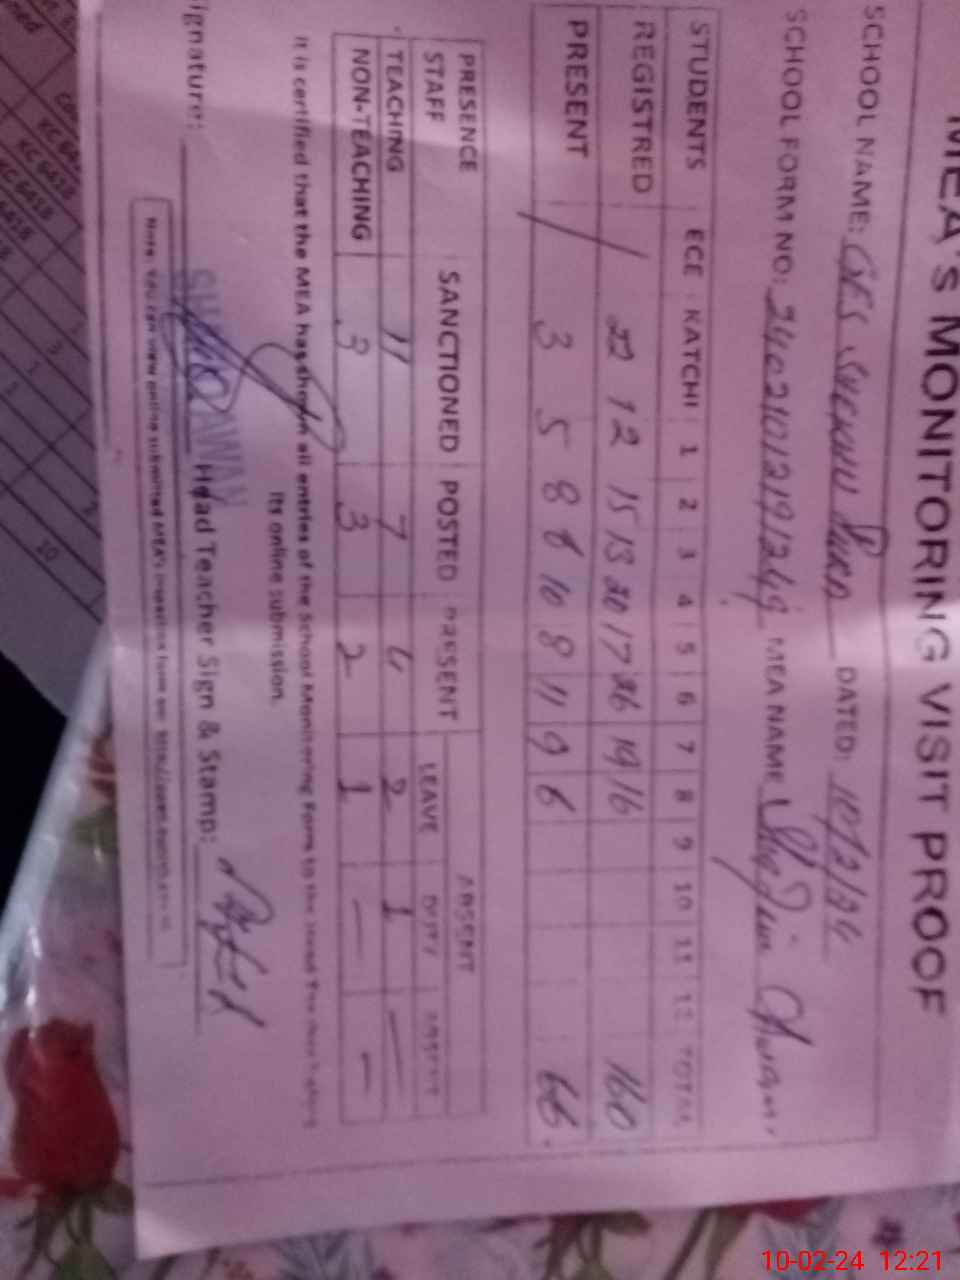 MEA'S MONITORING VISIT PROOF
SCHOOL NAME: GES DATED: 10/2/24
SCHOOL FORM NO: MEA NAME
STUDENTS ECE KATCHI 1 2 3 4 5 6 7 8 9 10 11 12 TOTAL
REGISTRED / 22 12 15 13 20 17 26 19 16 160
PRESENT 3 5 8 8 10 8 11 9 6 66.
PRESENCE STAFF SANCTIONED POSTED PRESENT ABSENT
LEAVE DUTY ABSENT
TEACHING 11 7 4 2 1 —
NON-TEACHING 3 3 2 1 — —
It is certified that the MEA has shown all entries of the School Monitoring Form to the Head Teacher before
its online submission.
Signature: Head Teacher Sign & Stamp:
Note: You can view online submitted MEA's
KC 6418
KC 6418
10
10-02-24 12:21